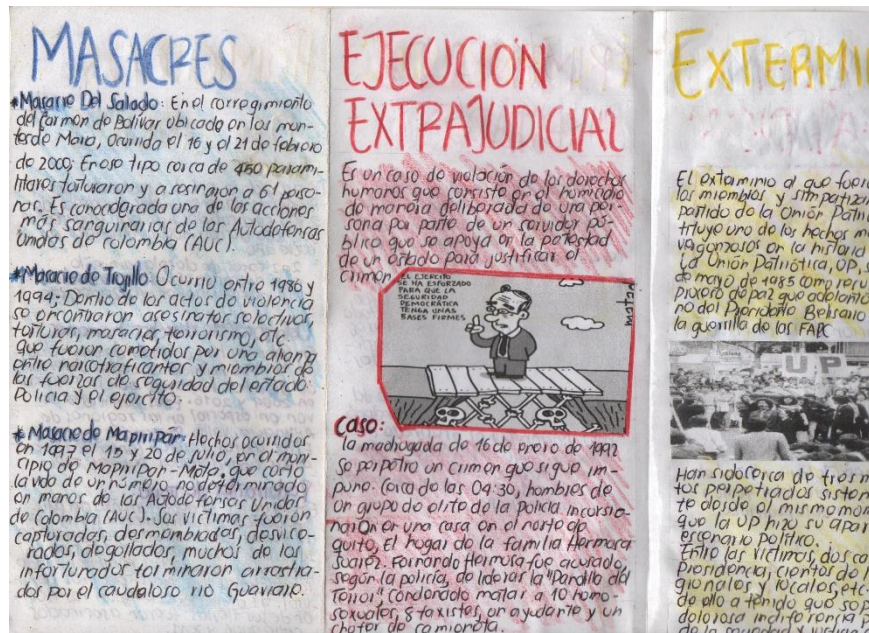 MASACRES
*Masacre Del Salado: En el corregimiento
del Carmen de Bolívar ubicado en los mon-
tes de Maria, Ocurrida el 16 y el 21 de febrero
de 2000; En ese tipo cerca de 450 parami-
litares torturaron y asesinaron a 61 perso-
nas. Es considerada una de las acciones
más sanguinarias de las Autodefensas
Unidas de colombia (AUC).
*Masacre de Trojillo Ocurrio entre 1986 y
1994; Dentro de los actos de violencia
se encontraron asesinatos selectivos,
torturas, masacres, terrorismo, etc
que fueron cometidos por una alianza
entre narcotraficantes y miembros de
las fuerzas de seguridad del estado
Policia y el ejercito.
*Masacre de Mapiripar: Hechos ocurridos
en 1997 el 15 y 20 de julio, en el muni-
cipio de Mapiripar-Meta, que corto
la vida de un número no determinado
en manos de las Autodefensas Unidas
de Colombia (AUC). Sus victimas fueron
capturadas, desmembradas, desvice-
radas, degollados, muchos de los
infortunados terminaron arrastra-
dos por el caudaloso rio Guaviare.
EJECUCIÓN
EXTRAJUDICIAL
Es un caso de violación de los derechos
humanos que consiste en el homicidio
de manera deliberada de una per-
sona por parte de un servidor pú-
blico que se apoya en la potestad
de un estado para justificar el
crimen.
EL EJERCITO
SE HA ESFORZADO
PARA QUE LA
SEGURIDAD
DEMOCRÁTICA
TENGA UNAS
BASES FIRMES
matador
Caso:
la madrugada de 16 de enero de 1992
se perpetro un crimen que sigue im-
pune. Cerca de las 04:30, hombres de
un grupo de elite de la policia incursio-
naron en una casa en el norte de
quito, El hogar de la familia Hermosa
Suarez. Fernando Hermosa fue acusado,
según la policia, de liderar la "Pandilla del
Terror" condenado matar a 10 homo-
sexuales, 8 taxistas, un ayudante y un
chofer de camioneta.
EXTERMI
El exterminio al que fuero
los miembros y simpatizan
partido de la Unión Patrió
tituye uno de los hechos m
vergonzosos en la historia
La Unión Patriótica, UP, s
de mayo de 1985 como resu
proceso de paz que adelanto
no del Presidente Belisario
la guerrilla de las FARC
UP
Han sido cerca de tres m
tos perpetrados sistem
te desde el mismo mom
que la UP hizo su apar
escenario político.
Entre las víctimas, dos ca
Presidencia, cientos de l
gionales y locales, etc.
de ello a tenido que sop
dolorosa indiferencia p
de la sociedad y justicia